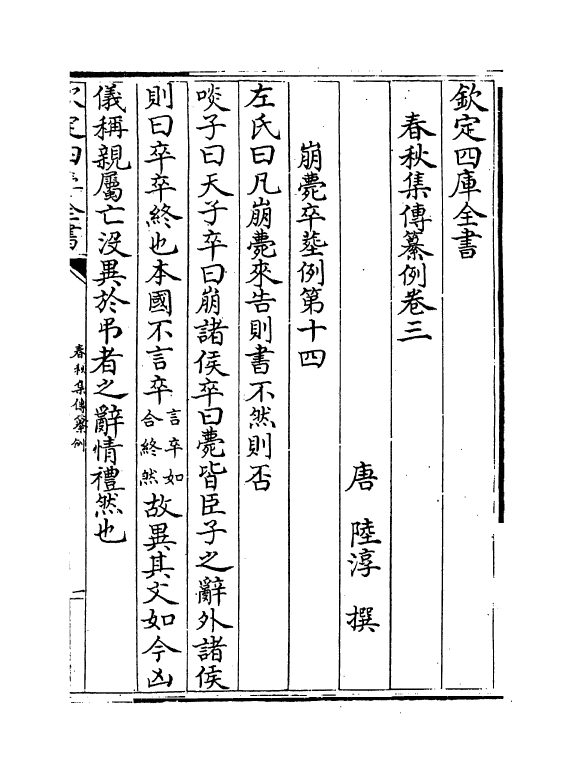 欽定四庫全書
春秋集傳纂例卷三
唐 陸淳 撰
崩薨卒塟例第十四
左氏曰凡崩薨來告則書不然則否
啖子曰天子卒曰崩諸侯卒曰薨皆臣子之辭外諸侯
則曰卒卒終也本國不言卒言卒如合終然故異其文如今凶
儀稱親屬亡沒異於弔者之辭情禮然也
欽定四庫全書
春秋集傳纂例
一